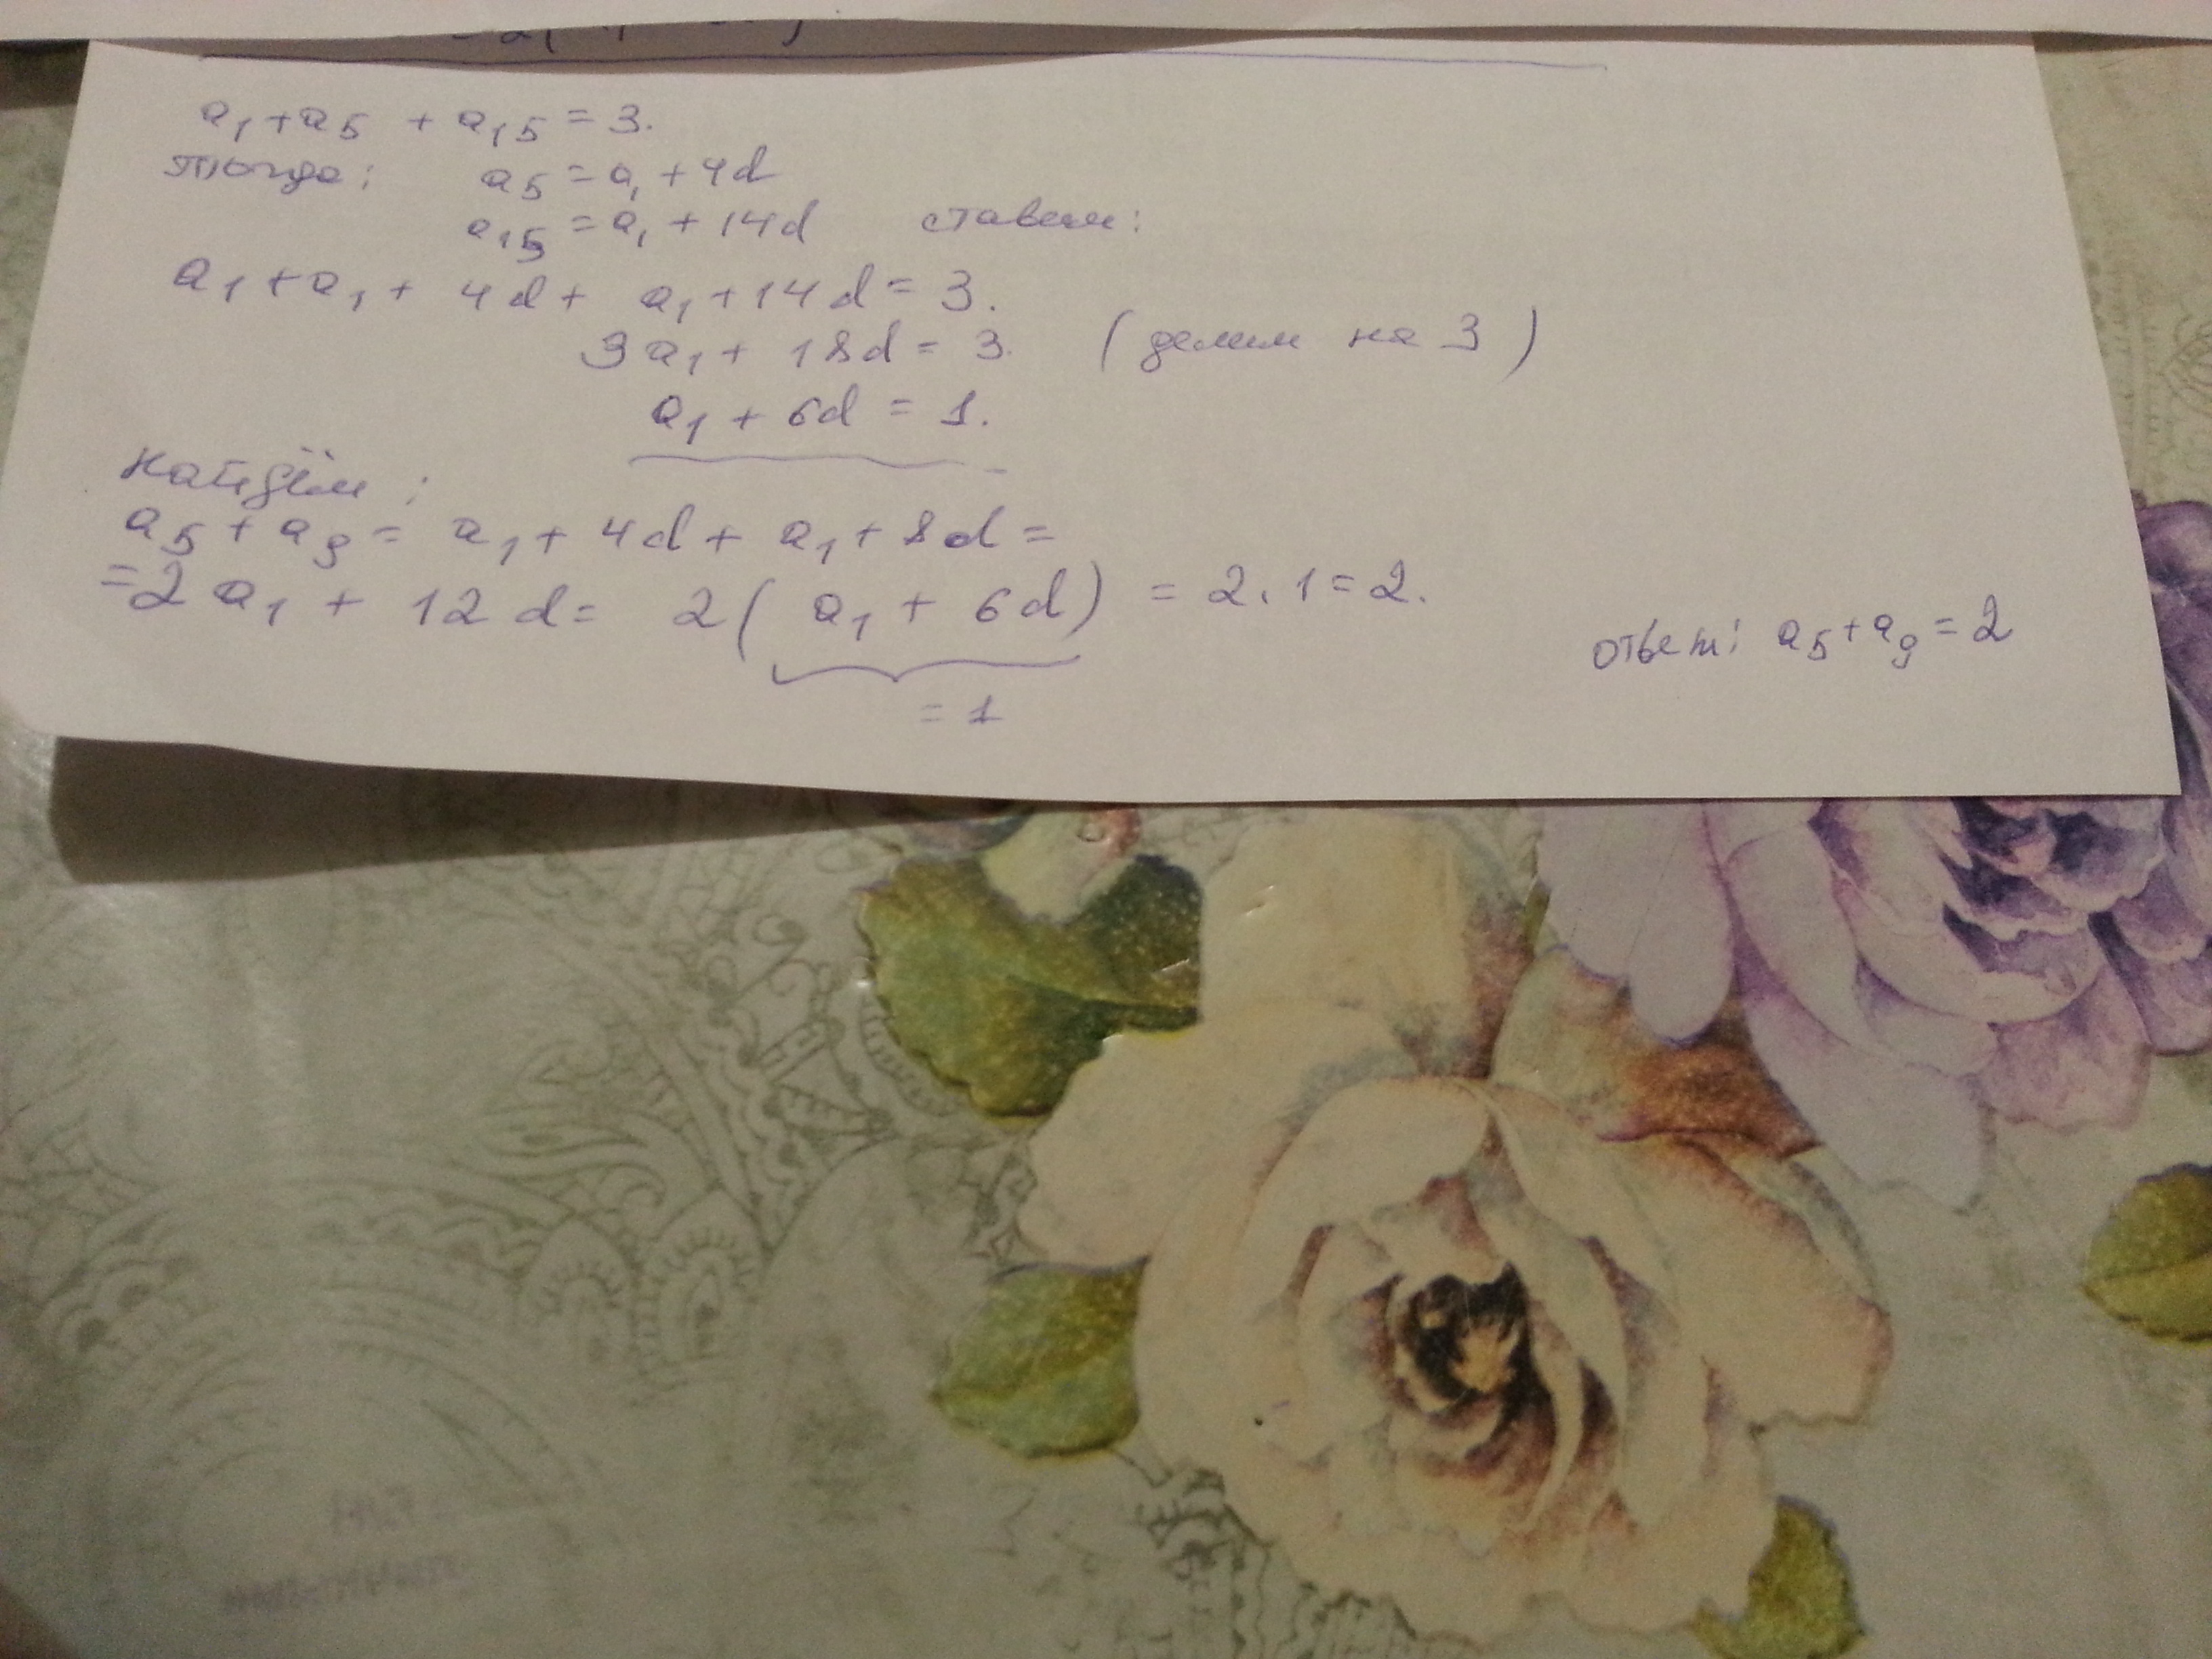 a₁ + a₅ + a₁₅ = 3.
тогда: a₅ = a₁ + 4d
a₁₅ = a₁ + 14d ставим:
a₁ + a₁ + 4d + a₁ + 14d = 3.
3a₁ + 18d = 3. (делим на 3)
a₁ + 6d = 1.
найдём:
a₅ + a₉ = a₁ + 4d + a₁ + 8d =
= 2a₁ + 12d = 2(a₁ + 6d) = 2 · 1 = 2.
= 1
ответ: a₅ + a₉ = 2